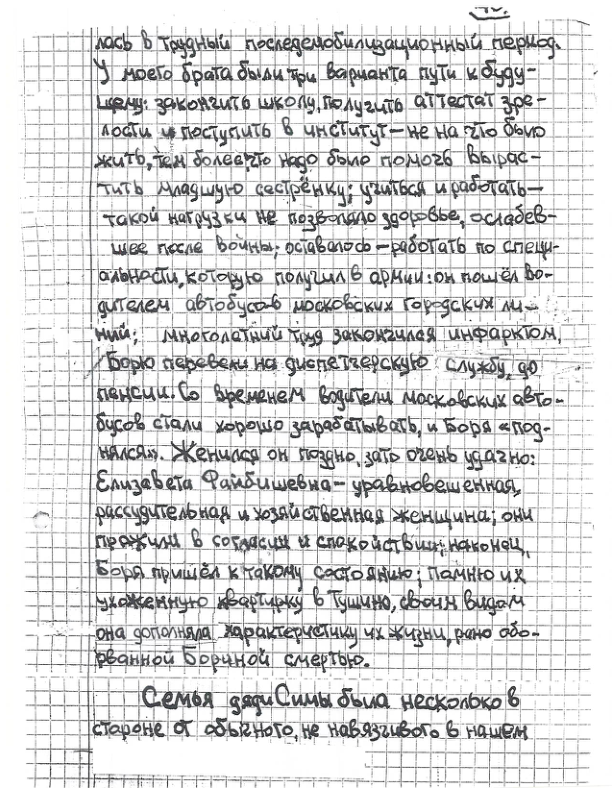 лась в трудный последемобилизационный период.
У моего брата были три варианта пути к буду-
щему: закончить школу, получить аттестат зре-
лости и поступить в институт — не на что было
жить, тем более, что надо было помочь вырас-
тить младшую сестрёнку; учиться и работать —
такой нагрузки не позволяло здоровье, ослабев-
шее после войны; оставалось — работать по специ-
альности, которую получил в армии: он пошёл во-
дителем автобусов московских городских ли-
ний; многолетний труд закончился инфарктом,
Борю перевели на диспетчерскую службу, до
пенсии. Со временем водители московских авто-
бусов стали хорошо зарабатывать, и Боря «под-
нялся». Женился он поздно, зато очень удачно:
Елизавета Файбишевна — уравновешенная,
рассудительная и хозяйственная женщина; они
прожили в согласии и спокойствии; наконец,
Боря пришёл к такому состоянию; помню их
ухоженную квартирку в Тушино, своим видом
она дополняла характеристику их жизни, рано обо-
рванной Бориной смертью.
Семья дяди Симы была несколько в
стороне от обычного, не навязчивого в нашем